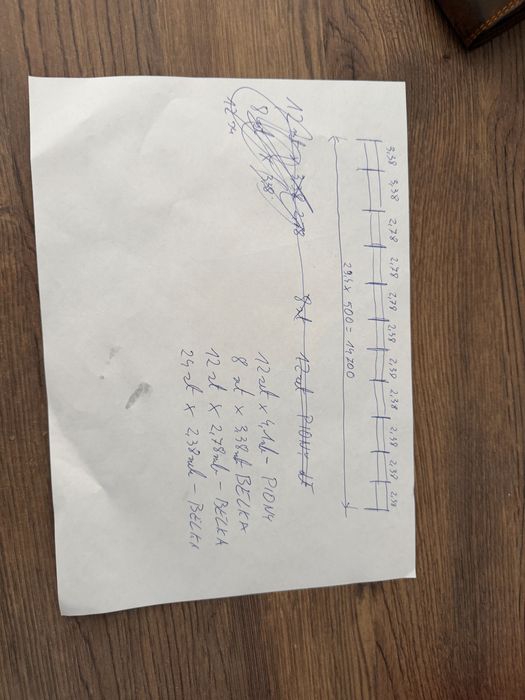 3,38 3,38 2,78 2,78 2,78 2,38 2,38 2,38 2,38 2,38 2,38
29,4 x 500 = 14700
12 szt x 3,38 2,78 8 szt 12 szt PIONY
8 szt x 3,38
12 szt
12 szt x 4,1 mb - PIONY
8 szt x 3,38 mb BELKA
12 szt x 2,78 mb - BELKA
24 szt x 2,38 mb - BELKA